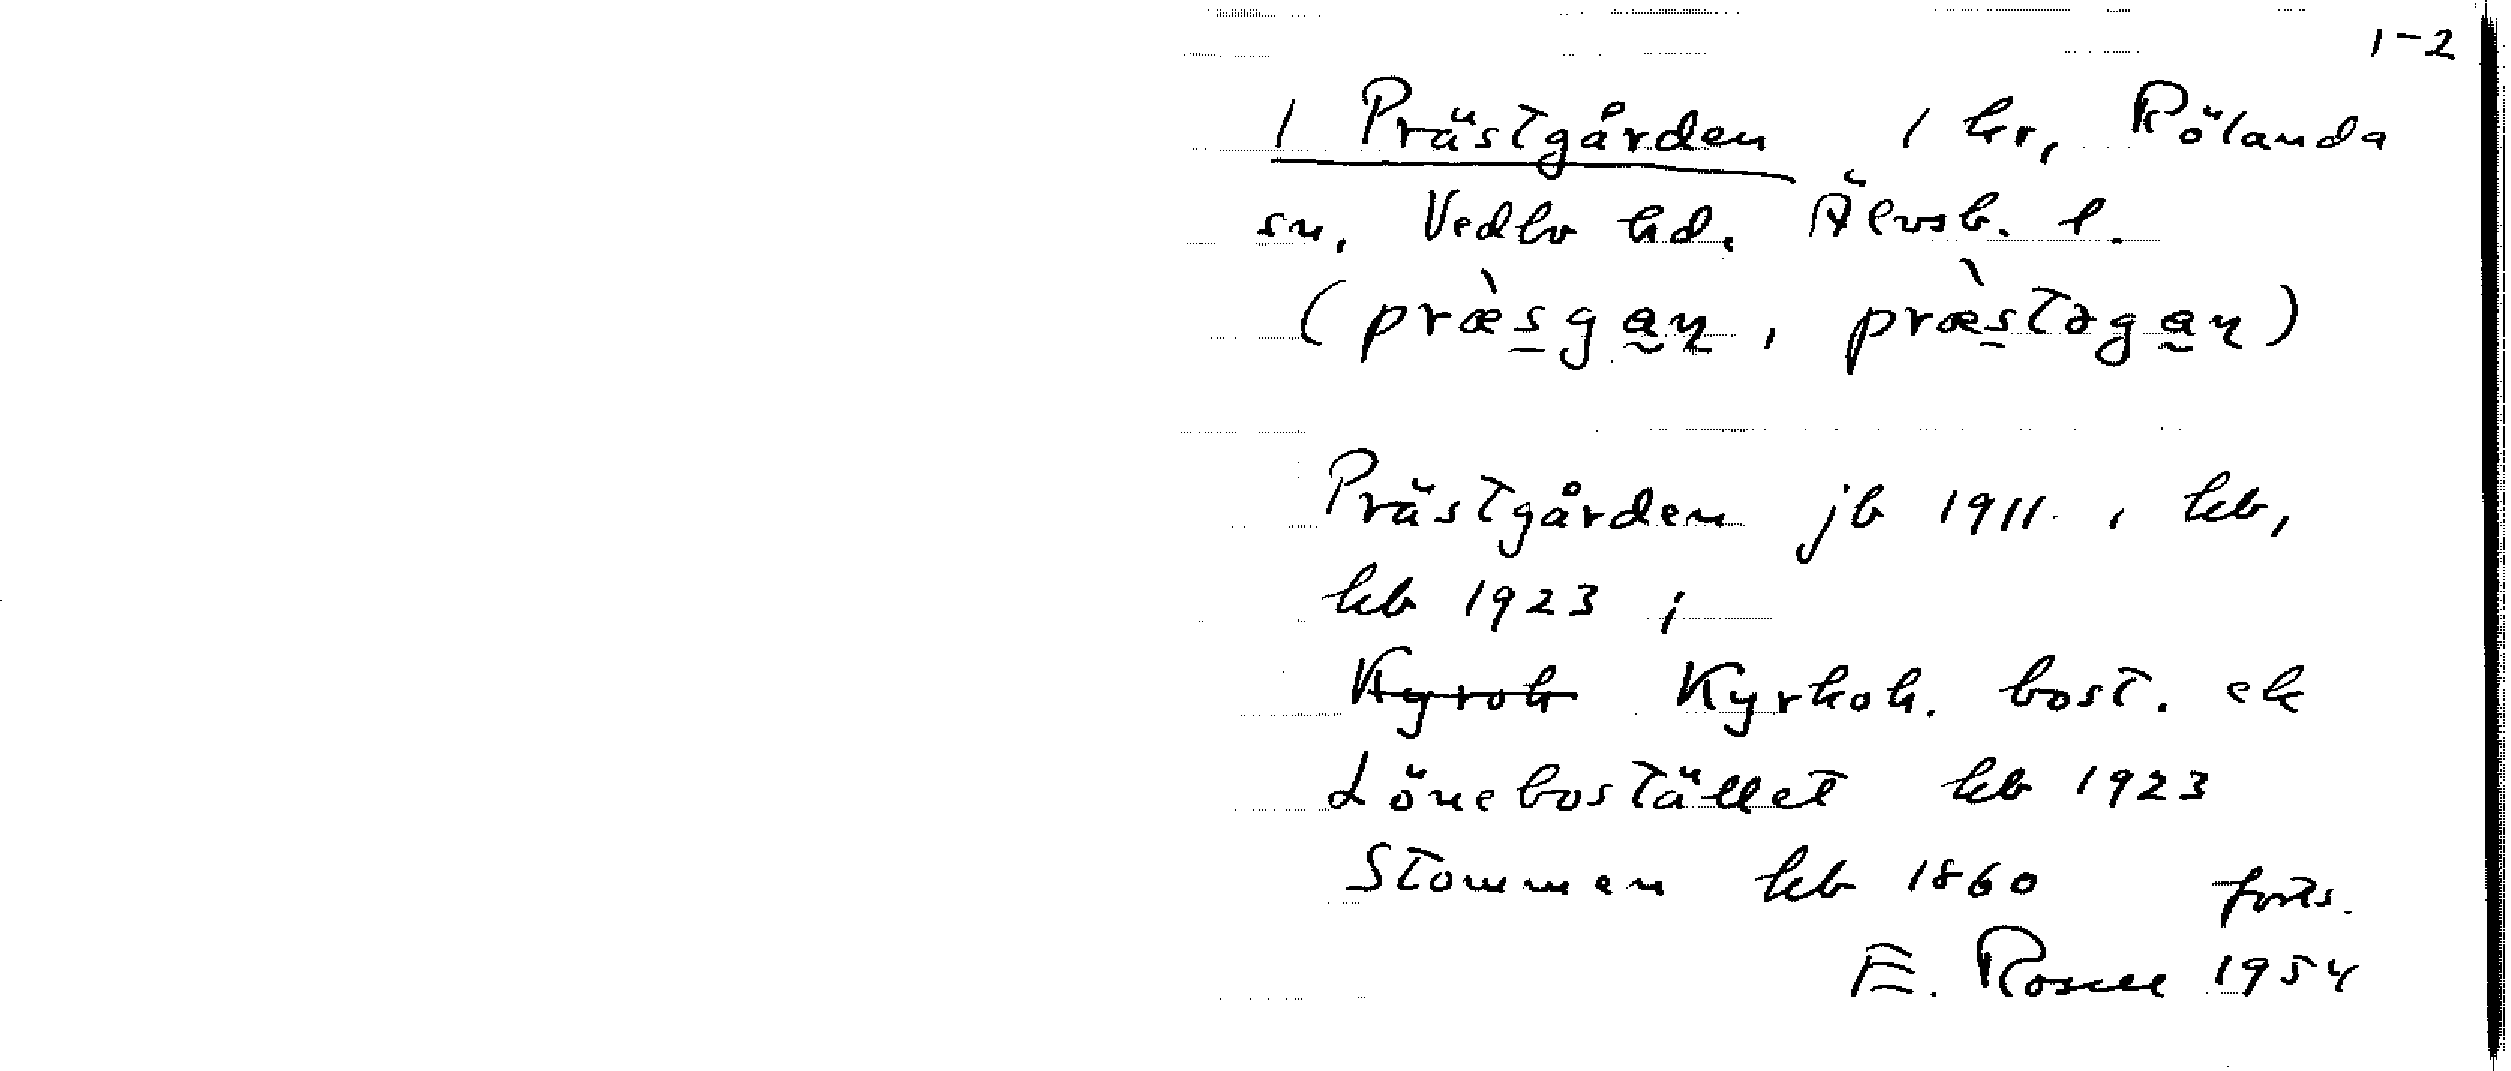 1-2
1 Prästgården 1 hr, Rölanda
sn. Vedbo hd. Älvsb. l.
(præ̀sgaɳ, præ̀stəgaɳ)
Prästgården jb 1911, kb,
kb 1923;
Kyrok Kyrkoh. bost. ek
Lönebostället kb 1923
Stommen kb 1860 forts.
E. Rosell 1954